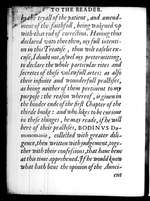 TO THE READER.
by the tryall of the patient, and amend-
ment of the faithfull, being wakened up
with that rod of correction. Having thus
declared unto thee then, my full intenti-
on in this Treatise, thou wilt easelie ex-
cuse, I doubt not, aswel my pretermitting,
to declare the whole particular rites and
secretes of these unlawfull artes: as also
their infinite and wounderfull practises,
as being neither of them pertinent to my
purpose: the reason whereof, is given in
the hinder ende of the first Chapter of the
thirde booke: and who likes to be curious
in these thinges, he may reade, if he will
here of their practises, BODINVS Dæ-
monomanie, collected with greater dili-
gence, then written with judgement, toge-
ther with their confessions, that have bene
at this time apprehened. If he would know
what hath bene the opinion of the Aunci-
ent